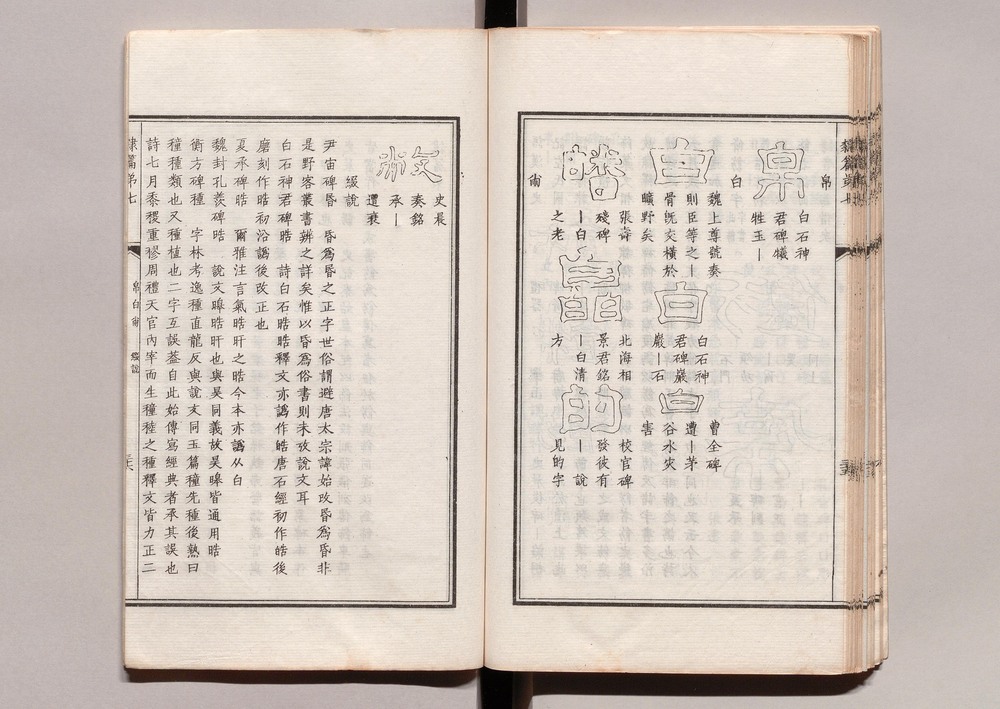 帛
帛
白石神
君碑犧
牲玉丨
白
白
魏上尊號奏
則臣等之丨
骨旣交橫於
曠野矣
白
白石神
君碑巖
巖丨石
白
曹全碑
遭丨茅
谷水灾
害
張壽
殘碑
丨白
之老
北海相
景君銘
丨白清
方
的
校官碑
發彼有
丨丨說
見的字
史晨
奏銘
承丨
遭衰
綴說
尹宙碑昬 昬爲昏之正字世俗謂避唐太宗諱始改昬爲昏非
是野客叢書辨之詳矣惟以昏爲俗書則未攷說文耳
白石神君碑晧 詩白石晧晧釋文亦譌作皓唐石經初作皓後
磨刻作晧初沿譌後改正也
夏承碑晧 爾雅注言氣晧旰之晧今本亦譌从白
魏封孔羨碑晧 說文暤晧旰也與昊同義故昊暤皆通用晧
衡方碑種 字林考逸種直龍反與說文同玉篇穜先種後熟曰
穜種類也又種植也二字互誤葢自此始傳寫經典者承其誤也
詩七月黍稷重穋周禮天官內宰而生穜稑之種釋文皆力正二
隸篇弟七
綴說